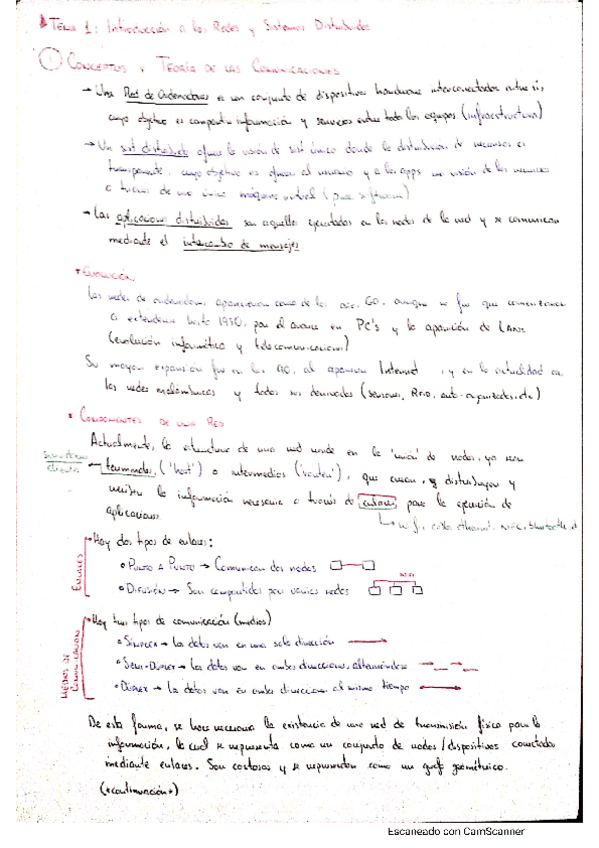 Tema 1: Introducción a las Redes y Sistemas Distribuidos
1 Conceptos y Teoría de las Comunicaciones
→ Una Red de Ordenadores es un conjunto de dispositivos hardware interconectados entre sí,
cuyo objetivo es compartir información y servicios entre todos los equipos (infraestructura)
→ Un sist. distribuido ofrece la visión de sist. único donde la distribución de recursos es
transparente, cuyo objetivo es ofrecer al usuario y a las apps una visión de los recursos
a través de una única máquina virtual (pure software)
→ Las aplicaciones distribuidas son aquellas ejecutadas en los nodos de la red y se comunican
mediante el intercambio de mensajes
Evolución
Las redes de ordenadores aparecieron cerca de los 60, aunque no fue que comenzaron
a extenderse hasta 1980, por el avance en PC's y la aparición de LANs
(evolución informática y telecomunicaciones)
Su mayor expansión fue en los 90, al aparecer Internet, y en la actualidad en
las redes inalámbricas y todos sus derivados (sensores, RFID, auto-organizados, etc)
Componentes de una Red
Actualmente, la estructura de una red reside en la 'unión' de nodos, ya sean
servidores
clientes
terminales, ('host') o intermedios ('routers'), que crean, distribuyen y
reciben la información necesaria a través de enlaces para la ejecución de
aplicaciones.
wifi, cable ethernet, bluetooth
ENLACES
Hay dos tipos de enlaces:
Punto a Punto → Comunican dos nodos
Difusión → Son compartidos por varios nodos
MEDIOS DE COMUNICACIÓN
Hay tres tipos de comunicación (medios)
Símplex → los datos van en una sola dirección
Semi-Dúplex → los datos van en ambas direcciones, alternándose
Dúplex → los datos van en ambas direcciones al mismo tiempo
De esta forma, se hace necesaria la existencia de una red de transmisión física para la
información, la cual se representa como un conjunto de nodos/dispositivos conectados
mediante enlaces. Son costosos y se representan como un grafo geométrico.
(*continuación*)
Escaneado con CamScanner